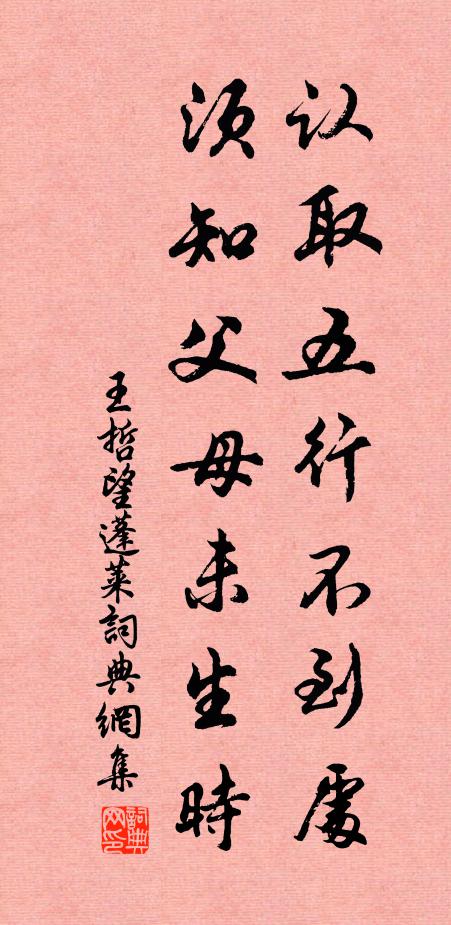 认取五行不到處
须知父母未生時
王哲望蓬萊詞典網集
詞典
网印